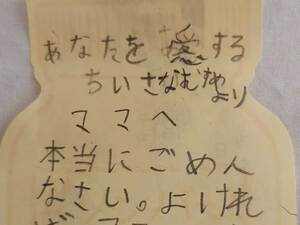 あなたを愛する
ちいさなむすめ
より
ママへ
本当にごめん
なさい。よければ